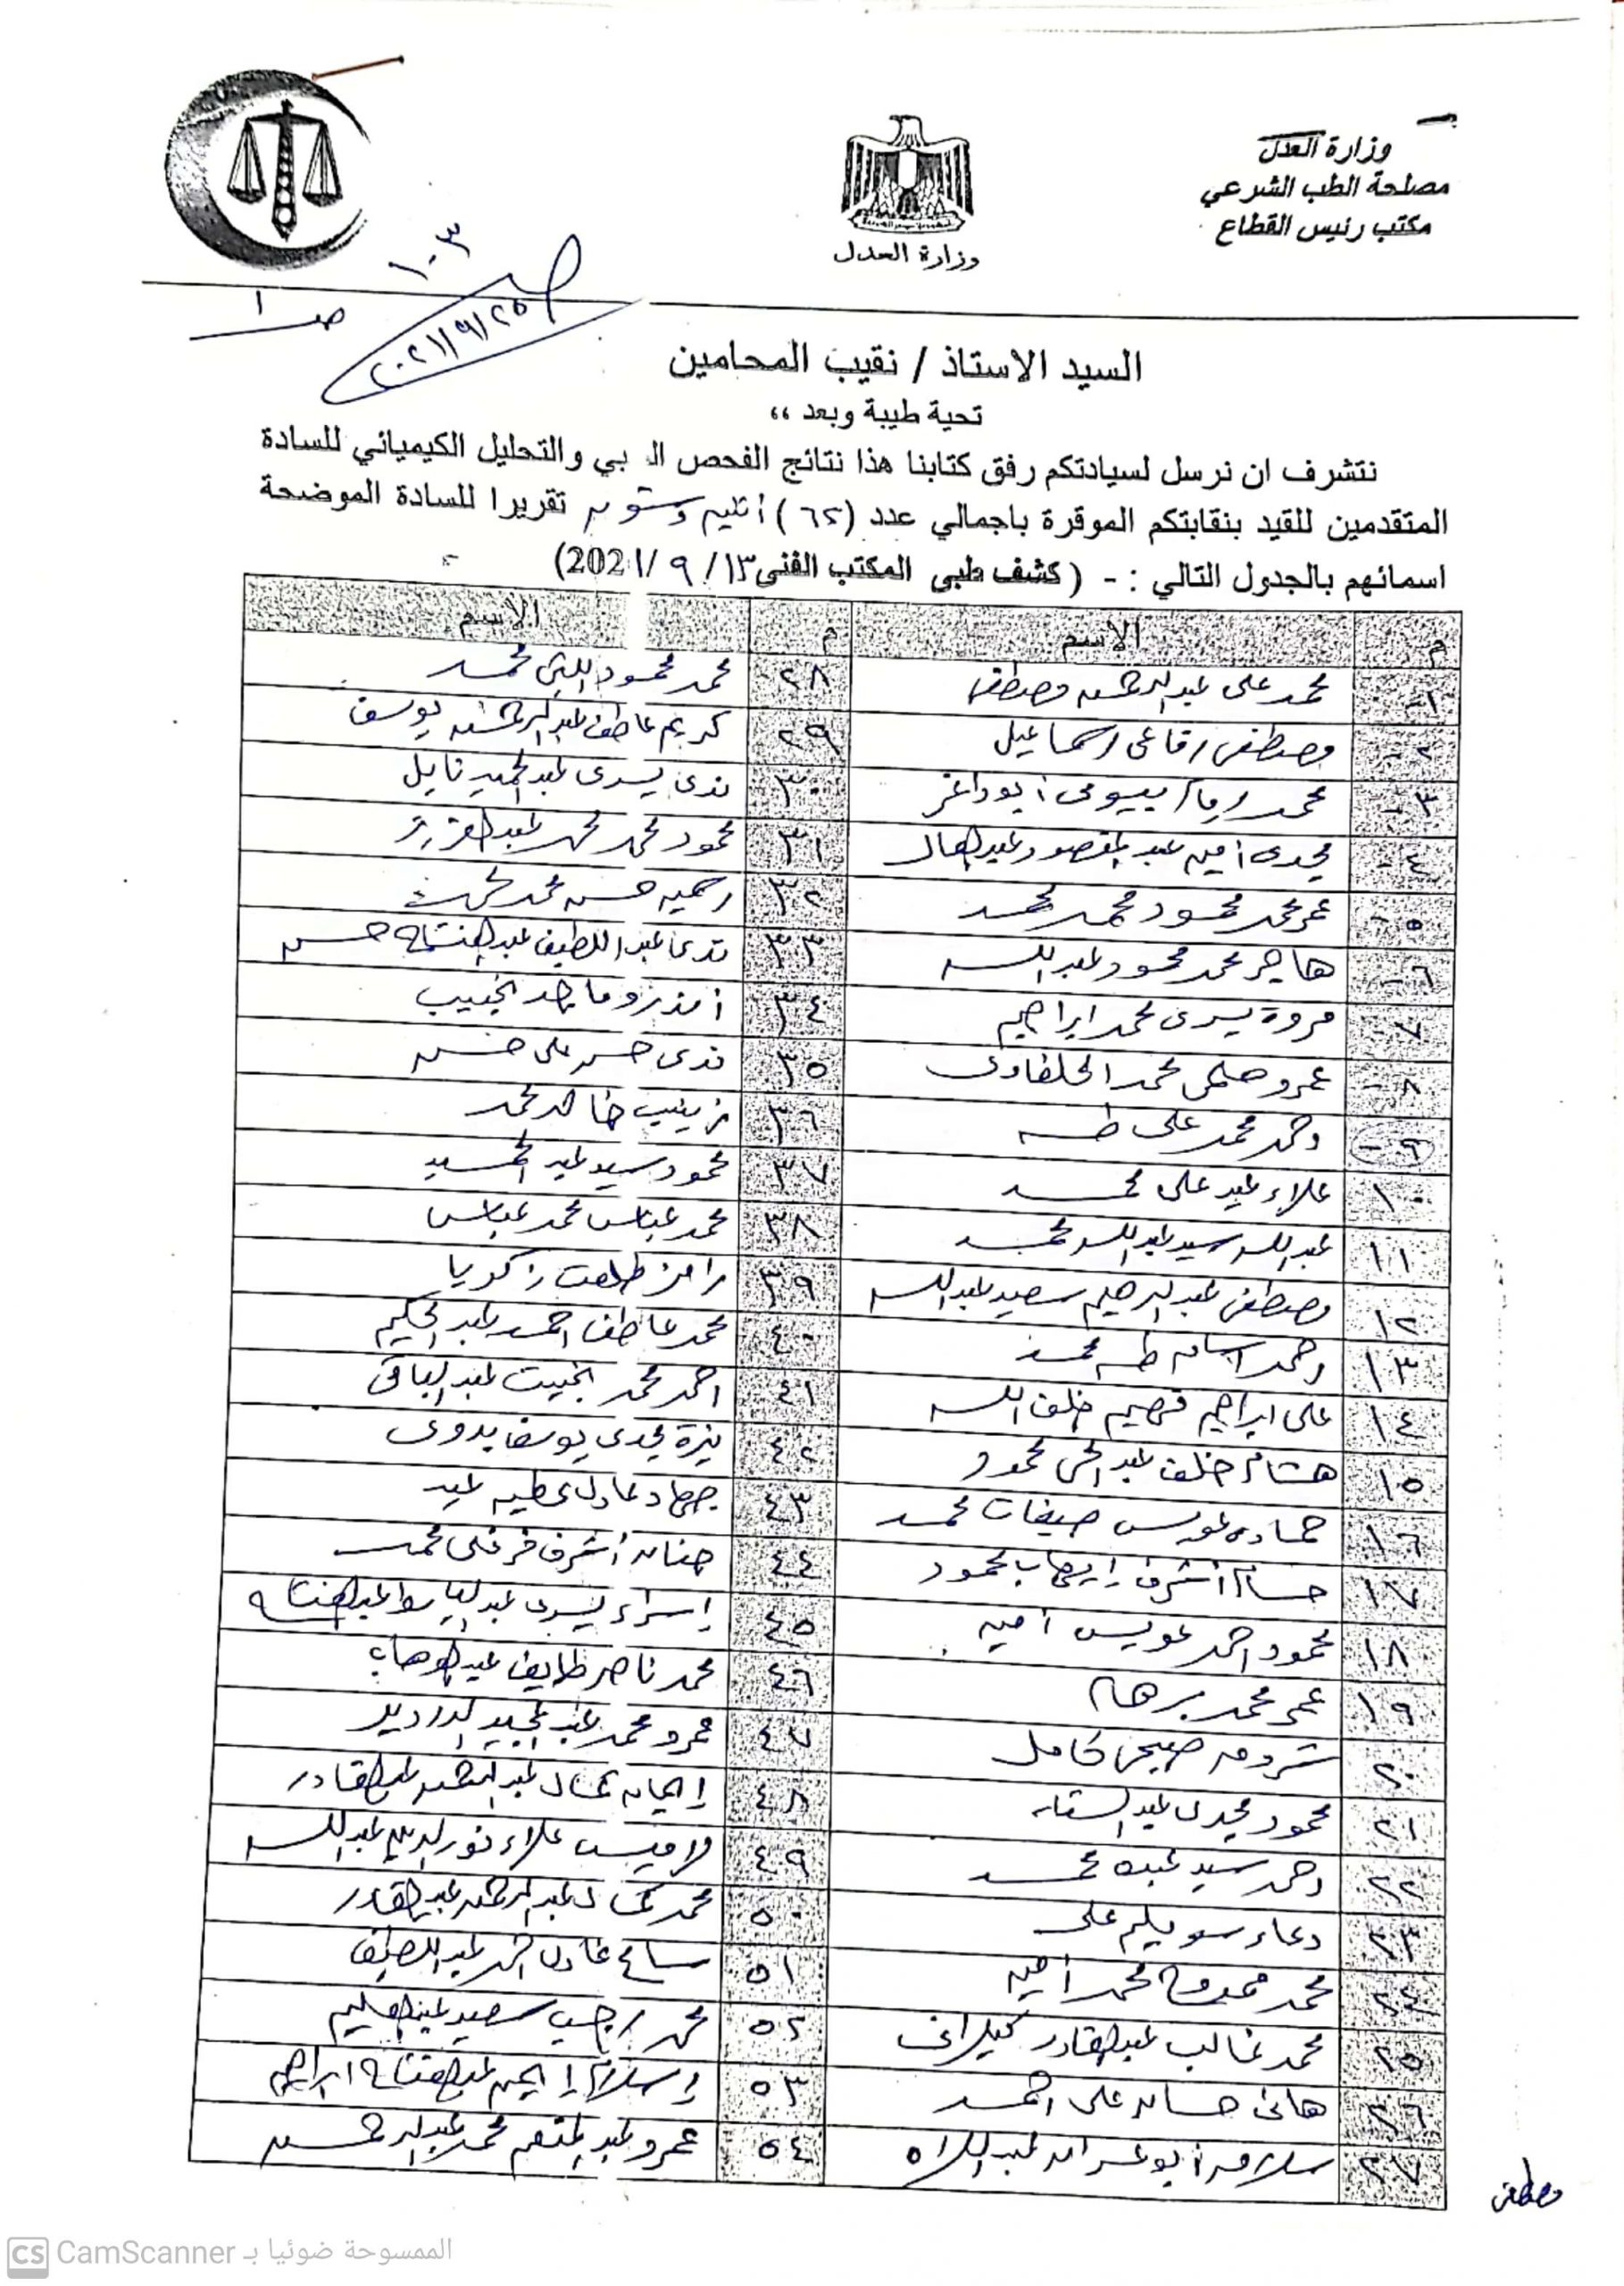 وزارة العدل
مصلحة الطب الشرعي
مكتب رئيس القطاع
وزارة العدل
١٠٣
٢٠٢١/٩/٢٥
صـ ١
السيد الاستاذ / نقيب المحامين
تحية طيبة وبعد ،،
نتشرف ان نرسل لسيادتكم رفق كتابنا هذا نتائج الفحص الـ بي والتحليل الكيميائي للسادة
المتقدمين للقيد بنقابتكم الموقرة باجمالي عدد (٦٢) أثنين وستون تقريرا للسادة الموضحة
اسمائهم بالجدول التالي :- (كشف طبى المكتب الفنى ١٣/ ٩ /2021)
م الاسم م الاسم
١- محمد على عبد الرحمن مصطفى ٢٨ محمد محمود الليثى محمد
٢- مصطفى رفاعى اسماعيل ٢٩ كريم عاطف عبد الرحمن يوسف
٣- محمد رضا بيومى أبو داغر ٣٠ ندى يسرى عبد الحميد نايل
٤- مجدى أمين عبد المقصود عبد العال ٣١ محمود محمد محمد عبد العزيز
٥- عمر محمد محمود محمد محمد ٣٢ حسن محمد
٦- هاجر محمد محمود عبد الله ٣٣ ندى عبد اللطيف عبد الفتاح حسن
٧- مروة يسرى محمد ابراهيم ٣٤ ماجد نجيب
٨- عمرو حلمى محمد الحلفاوى ٣٥ ندى حسن على حسن
٩- احمد محمد على طه ٣٦ زينب خالد محمد
١٠ علاء عيد على محمد ٣٧ محمود سيد عبد الحميد
١١ عبد الله سيد عبد الله محمد ٣٨ محمد عباس محمد عباس
١٢ مصطفى عبد الرحيم سعيد عبد الله ٣٩ رامز طلعت زكريا
١٣ احمد اسامه طه محمد ٤٠ محمد عاطف احمد عبد الحكيم
١٤ على ابراهيم فهيم خلف الله ٤١ احمد محمد بخيت عبد الباقى
١٥ هشام خلف عبد الحى محمود ٤٢ يمجدى يوسف بدوى
١٦ حماده عويس ضيفات محمد ٤٣ جهاد عادل عطيه عيد
١٧ حسام أشرف إيهاب محمود ٤٤ حنان أشرف فرغلى محمد
١٨ محمود احمد عويس أمين ٤٥ إسراء يسرى عبد الباسط عبد الفتاح
١٩ عمر محمد برهام ٤٦ محمد ناصر نظيف عبد الوهاب
٢٠ صبحى كامل ٤٧ عمرو محمد عبد المجيد الدردير
٢١ محمود مجدى عبد الستار ٤٨ إيمان كمال عبد الرحمن عبد القادر
٢٢ احمد سيد عبده محمد ٤٩ لاميس علاء نور الدين عبد الله
٢٣ دعاء سويلم على ٥٠ محمد كمال عبد الرحمن عبد القادر
٢٤ محمد ممدوح محمد أمين ٥١ سامح عادل احمد عبد اللطيف
٢٥ محمد غالب عبد القادر كيلانى ٥٢ محمد رجب سعيد عبد العليم
٢٦ هانى حسان على احمد ٥٣ إسلام إيمن عبد الفتاح ابراهيم
٢٧ سلامه أبو عبد اللاه ٥٤ عمرو عبد المنعم محمد عبد الرحمن
مصطفى
CS CamScanner الممسوحة ضوئيا بـ